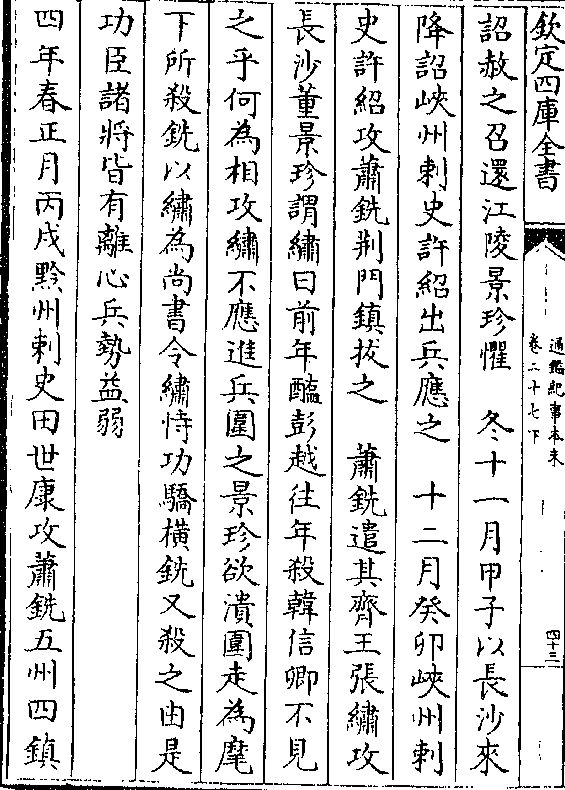 欽定四庫全書
通鑑紀事本末
卷二十七下
四十三
詔赦之召還江陵景珍懼　冬十一月甲子以長沙來
降詔峽州刺史許紹出兵應之　十二月癸卯峽州刺
史許紹攻蕭銑荆門鎮拔之　蕭銑遣其齊王張繡攻
長沙董景珍謂繡曰前年醢彭越往年殺韓信卿不見
之乎何為相攻繡不應進兵圍之景珍欲潰圍走為麾
下所殺銑以繡為尚書令繡恃功驕橫銑又殺之由是
功臣諸將皆有離心兵勢益弱
四年春正月丙戌黔州刺史田世康攻蕭銑五州四鎮